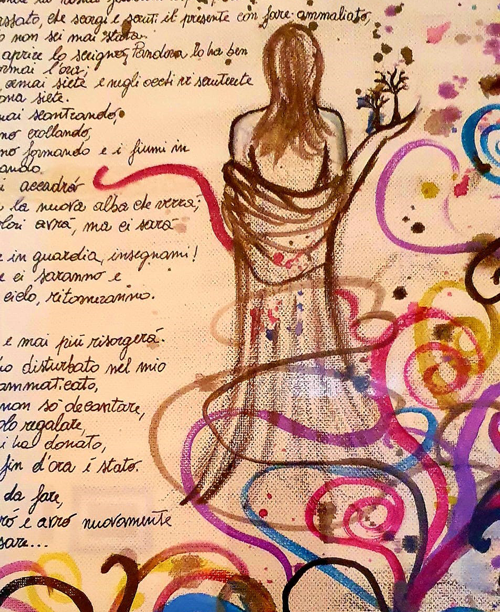 passato, che scorgi e scruti il presente con fare ammaliato,
o non sei mai stata.
aprire lo scrigno, Pandora lo ha ben
ormai l'ora!
oramai siete e negli occhi vi scruterete
ora siete.
mai scontrando,
no crollando,
no formando e i fiumi in
ando.
i accadrá
la nuova alba che verrá,
olori avrá, ma ci sará
e in guardia, insegnami!
e ci saranno e
cielo, ritorneranno.
e mai più risorgerá.
ho disturbato nel mio
ammaticato,
non so decantare,
olo regalare,
i ha donato,
fin d'ora i stato.
da fare,
ró e avró nuovamente
sare...